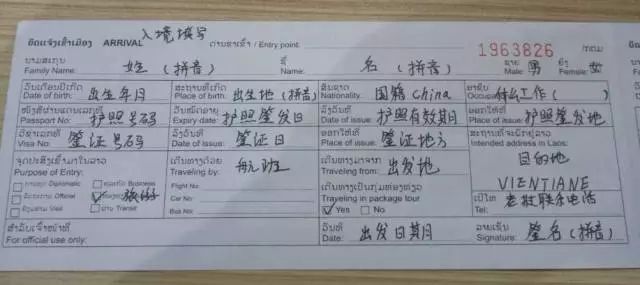 入境填写
ບັດແຈ້ງເຂົ້າເມືອງ ARRIVAL ດ່ານຂາເຂົ້າ / Entry point:
1963826 /ກຕມ
ນາມສະກຸນ 姓 (拼音) ຊື່ 名 (拼音) ຊາຍ 男 ຍິງ 女
Family Name: Name: Male: Female:
ວັນເດືອນປີເກີດ ສະຖານທີ່ເກີດ ສັນຊາດ ອາຊີບ
Date of birth: 出生年月 Place of birth: 出生地 (拼音) Nationality: 国籍 China Occupa 什么工作 ( )
ໜັງສືຜ່ານແດນເລກທີ ວັນໝົດອາຍຸ ລົງວັນທີ ອອກໃຫ້ທີ່
Passport No: 护照号码 Expiry date: 护照签发日 Date of issue: 护照有效期 Place of issue: 护照签发地
ວີຊາເລກທີ ລົງວັນທີ ອອກໃຫ້ທີ່ ສະຖານທີ່ຈະພັກຢູ່ລາວ
Visa No: 签证号码 Date of issue: 签证日 Place of issue: 签证地方 Intended address in Laos:
目的地
VIENTIANE
ຈຸດປະສົງເຂົ້າມາໃນລາວ ເດີນທາງດ້ວຍ 航班 ເດີນທາງມາຈາກ 出发地
Purpose of Entry: Traveling by: Traveling from:
ການທູດ Diplomatic ທຸລະກິດ Business Flight No: ເດີນທາງເປັນກຸ່ມທ່ອງທ່ຽວ
Official 旅游 Car No: Traveling in package tour ເບີໂທ 老挝联系电话
ຢ້ຽມຢາມ Visit ຜ່ານ Transit Bus No: Yes No Tel:
ສຳລັບເຈົ້າໜ້າທີ່ ວັນທີ ລາຍເຊັນ
For official use only: Date: 出发日期月 Signature: 签名 (拼音)